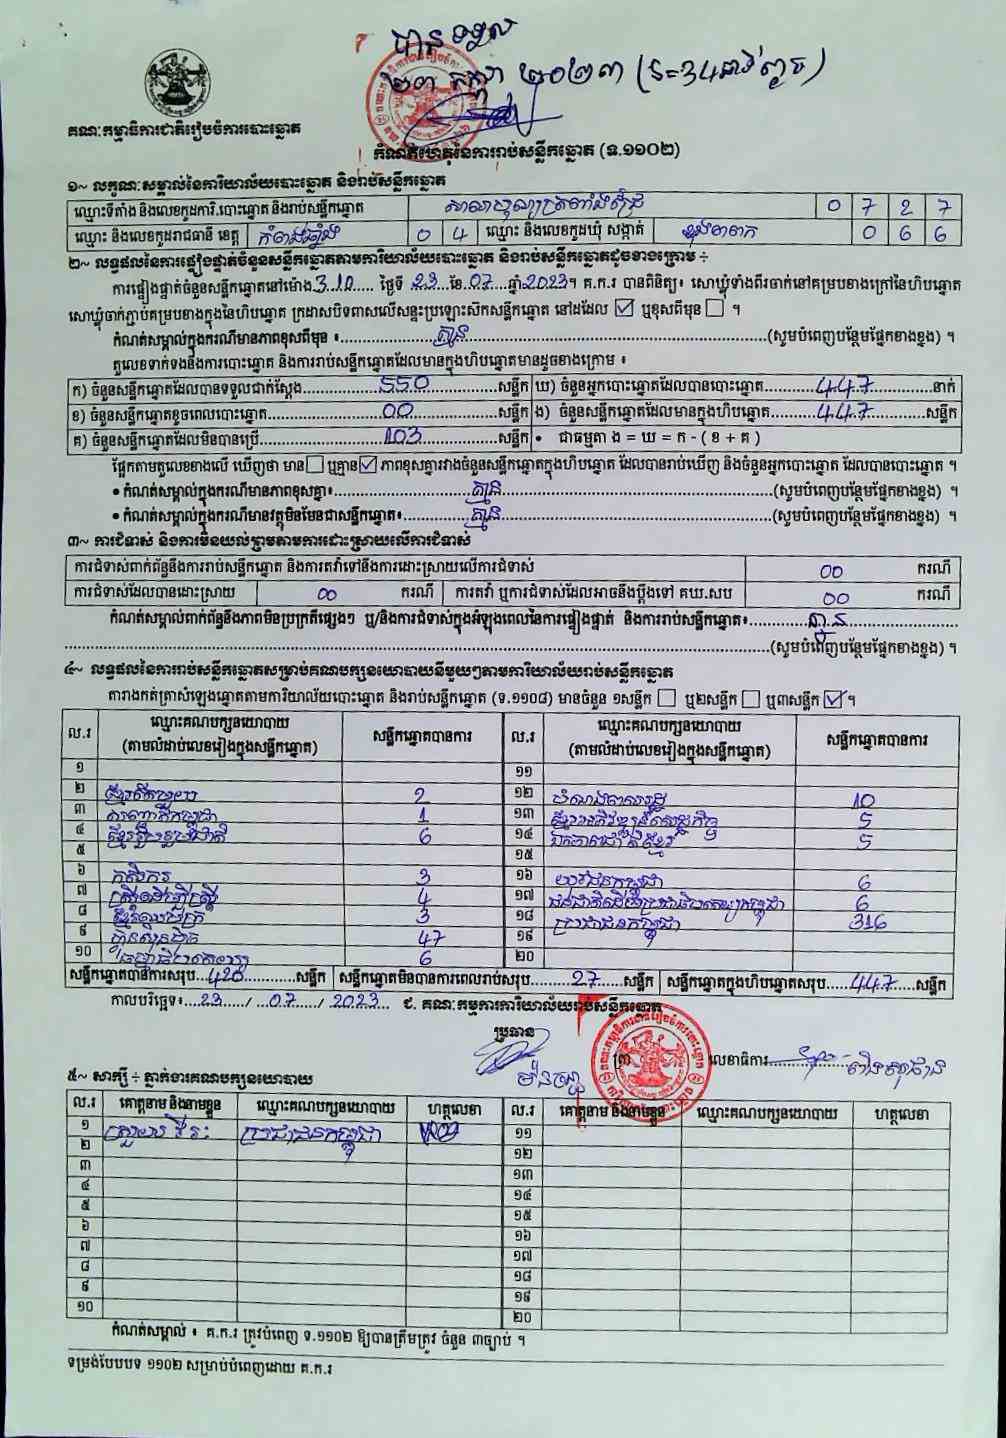 បានទទួល
២៣ កក្កដា ២០២៣
គណៈកម្មាធិការជាតិរៀបចំការបោះឆ្នោត
កំណត់ហេតុនៃការរាប់សន្លឹកឆ្នោត (ទ.១១០២)
១~ លក្ខណៈសម្គាល់នៃការិយាល័យបោះឆ្នោត និងរាប់សន្លឹកឆ្នោត
ឈ្មោះទីតាំង និងលេខកូដការិ.បោះឆ្នោត និងរាប់សន្លឹកឆ្នោត 0 7 2 7
ឈ្មោះ និងលេខកូដរាជធានី ខេត្ត កំពង់ឆ្នាំង 0 4 ឈ្មោះ និងលេខកូដឃុំ សង្កាត់ 0 6 6
២~ លទ្ធផលនៃការផ្ទៀងផ្ទាត់ចំនួនសន្លឹកឆ្នោតតាមការិយាល័យបោះឆ្នោត និងរាប់សន្លឹកឆ្នោតដូចខាងក្រោម ÷
ការផ្ទៀងផ្ទាត់ចំនួនសន្លឹកឆ្នោតនៅម៉ោង 3:10 ថ្ងៃទី 23 ខែ 07 ឆ្នាំ 2023។ គ.ក.រ បានពិនិត្យ៖ សោឃ្លុំទាំងពីរចាក់នៅគម្របខាងក្រៅនៃហិបឆ្នោត
សោឃ្លុំចាក់ភ្ជាប់គម្របខាងក្នុងនៃហិបឆ្នោត ក្រដាសបិទពាសលើសន្ទះប្រឡោះសឹកសន្លឹកឆ្នោត នៅដដែល ☑ ឬខុសពីមុន ☐ ។
កំណត់សម្គាល់ក្នុងករណីមានភាពខុសពីមុន ៖ គ្មាន (សូមបំពេញបន្ថែមផ្នែកខាងខ្នង) ។
តួលេខទាក់ទងនឹងការបោះឆ្នោត និងការរាប់សន្លឹកឆ្នោតដែលមានក្នុងហិបឆ្នោតមានដូចខាងក្រោម ៖
ក) ចំនួនសន្លឹកឆ្នោតដែលបានទទួលជាក់ស្តែង 550 សន្លឹក ឃ) ចំនួនអ្នកបោះឆ្នោតដែលបានបោះឆ្នោត 447 នាក់
ខ) ចំនួនសន្លឹកឆ្នោតខូចពេលបោះឆ្នោត 00 សន្លឹក ង) ចំនួនសន្លឹកឆ្នោតដែលមានក្នុងហិបឆ្នោត 447 សន្លឹក
គ) ចំនួនសន្លឹកឆ្នោតដែលមិនបានប្រើ 103 សន្លឹក • ជាធម្មតា ង = ឃ = ក - ( ខ + គ )
ផ្អែកតាមតួលេខខាងលើ ឃើញថា មាន ☐ ឬគ្មាន ☑ ភាពខុសគ្នារវាងចំនួនសន្លឹកឆ្នោតក្នុងហិបឆ្នោត ដែលបានរាប់ឃើញ និងចំនួនអ្នកបោះឆ្នោត ដែលបានបោះឆ្នោត ។
• កំណត់សម្គាល់ក្នុងករណីមានភាពខុសគ្នា៖ គ្មាន (សូមបំពេញបន្ថែមផ្នែកខាងខ្នង) ។
• កំណត់សម្គាល់ក្នុងករណីមានវត្ថុមិនមែនជាសន្លឹកឆ្នោត៖ គ្មាន (សូមបំពេញបន្ថែមផ្នែកខាងខ្នង) ។
៣~ ការជំទាស់ និងការមិនយល់ព្រមតាមការដោះស្រាយលើការជំទាស់
ការជំទាស់ពាក់ព័ន្ធនឹងការរាប់សន្លឹកឆ្នោត និងការតវ៉ាទៅនឹងការដោះស្រាយលើការជំទាស់ 00 ករណី
ការជំទាស់ដែលបានដោះស្រាយ 00 ករណី ការតវ៉ា ឬការជំទាស់ដែលអាចនឹងប្តឹងទៅ គឃ.សប 00 ករណី
កំណត់សម្គាល់ពាក់ព័ន្ធនឹងភាពមិនប្រក្រតីផ្សេងៗ ឬ/និងការជំទាស់ក្នុងអំឡុងពេលនៃការផ្ទៀងផ្ទាត់ និងការរាប់សន្លឹកឆ្នោត៖ គ្មាន
(សូមបំពេញបន្ថែមផ្នែកខាងខ្នង) ។
៤~ លទ្ធផលនៃការរាប់សន្លឹកឆ្នោតសម្រាប់គណបក្សនយោបាយនីមួយៗតាមការិយាល័យរាប់សន្លឹកឆ្នោត
តារាងកត់ត្រាសំឡេងឆ្នោតតាមការិយាល័យបោះឆ្នោត និងរាប់សន្លឹកឆ្នោត (ទ.១១០៨) មានចំនួន ១សន្លឹក ☐ ឬ២សន្លឹក ☐ ឬ៣សន្លឹក ☑ ។
ល.រ ឈ្មោះគណបក្សនយោបាយ (តាមលំដាប់លេខរៀងក្នុងសន្លឹកឆ្នោត) សន្លឹកឆ្នោតបានការ ល.រ ឈ្មោះគណបក្សនយោបាយ (តាមលំដាប់លេខរៀងក្នុងសន្លឹកឆ្នោត) សន្លឹកឆ្នោតបានការ
១ ១១
២ 2 ១២ 10
៣ 1 ១៣ ខ្មែរអភិវឌ្ឍន៍សេដ្ឋកិច្ច 5
៤ ខ្មែររួបរួមជាតិ 6 ១៤ ឯកភាពជាតិខ្មែរ 5
៥ ១៥
៦ កសិករ 3 ១៦ យុវជនកម្ពុជា 6
៧ ស្ត្រីដើម្បីស្ត្រី 4 ១៧ 6
៨ 3 ១៨ ប្រជាជនកម្ពុជា 316
៩ ហ្វ៊ុនស៊ិនប៉ិច 47 ១៩
១០ 6 ២០
សន្លឹកឆ្នោតបានការសរុប 420 សន្លឹក សន្លឹកឆ្នោតមិនបានការពេលរាប់សរុប 27 សន្លឹក សន្លឹកឆ្នោតក្នុងហិបឆ្នោតសរុប 447 សន្លឹក
កាលបរិច្ឆេទ៖ 23 / 07 / 2023 ជ. គណៈកម្មការការិយាល័យរាប់សន្លឹកឆ្នោត
ប្រធាន
លេខាធិការ
៥~ សាក្សី ÷ ភ្នាក់ងារគណបក្សនយោបាយ
ល.រ គោត្តនាម និងនាមខ្លួន ឈ្មោះគណបក្សនយោបាយ ហត្ថលេខា ល.រ គោត្តនាម និងនាមខ្លួន ឈ្មោះគណបក្សនយោបាយ ហត្ថលេខា
១ ប្រជាជនកម្ពុជា ១១
២ ១២
៣ ១៣
៤ ១៤
៥ ១៥
៦ ១៦
៧ ១៧
៨ ១៨
៩ ១៩
១០ ២០
កំណត់សម្គាល់ ៖ គ.ក.រ ត្រូវបំពេញ ទ.១១០២ ឱ្យបានត្រឹមត្រូវ ចំនួន ៣ច្បាប់ ។
ទម្រង់បែបបទ ១១០២ សម្រាប់បំពេញដោយ គ.ក.រ